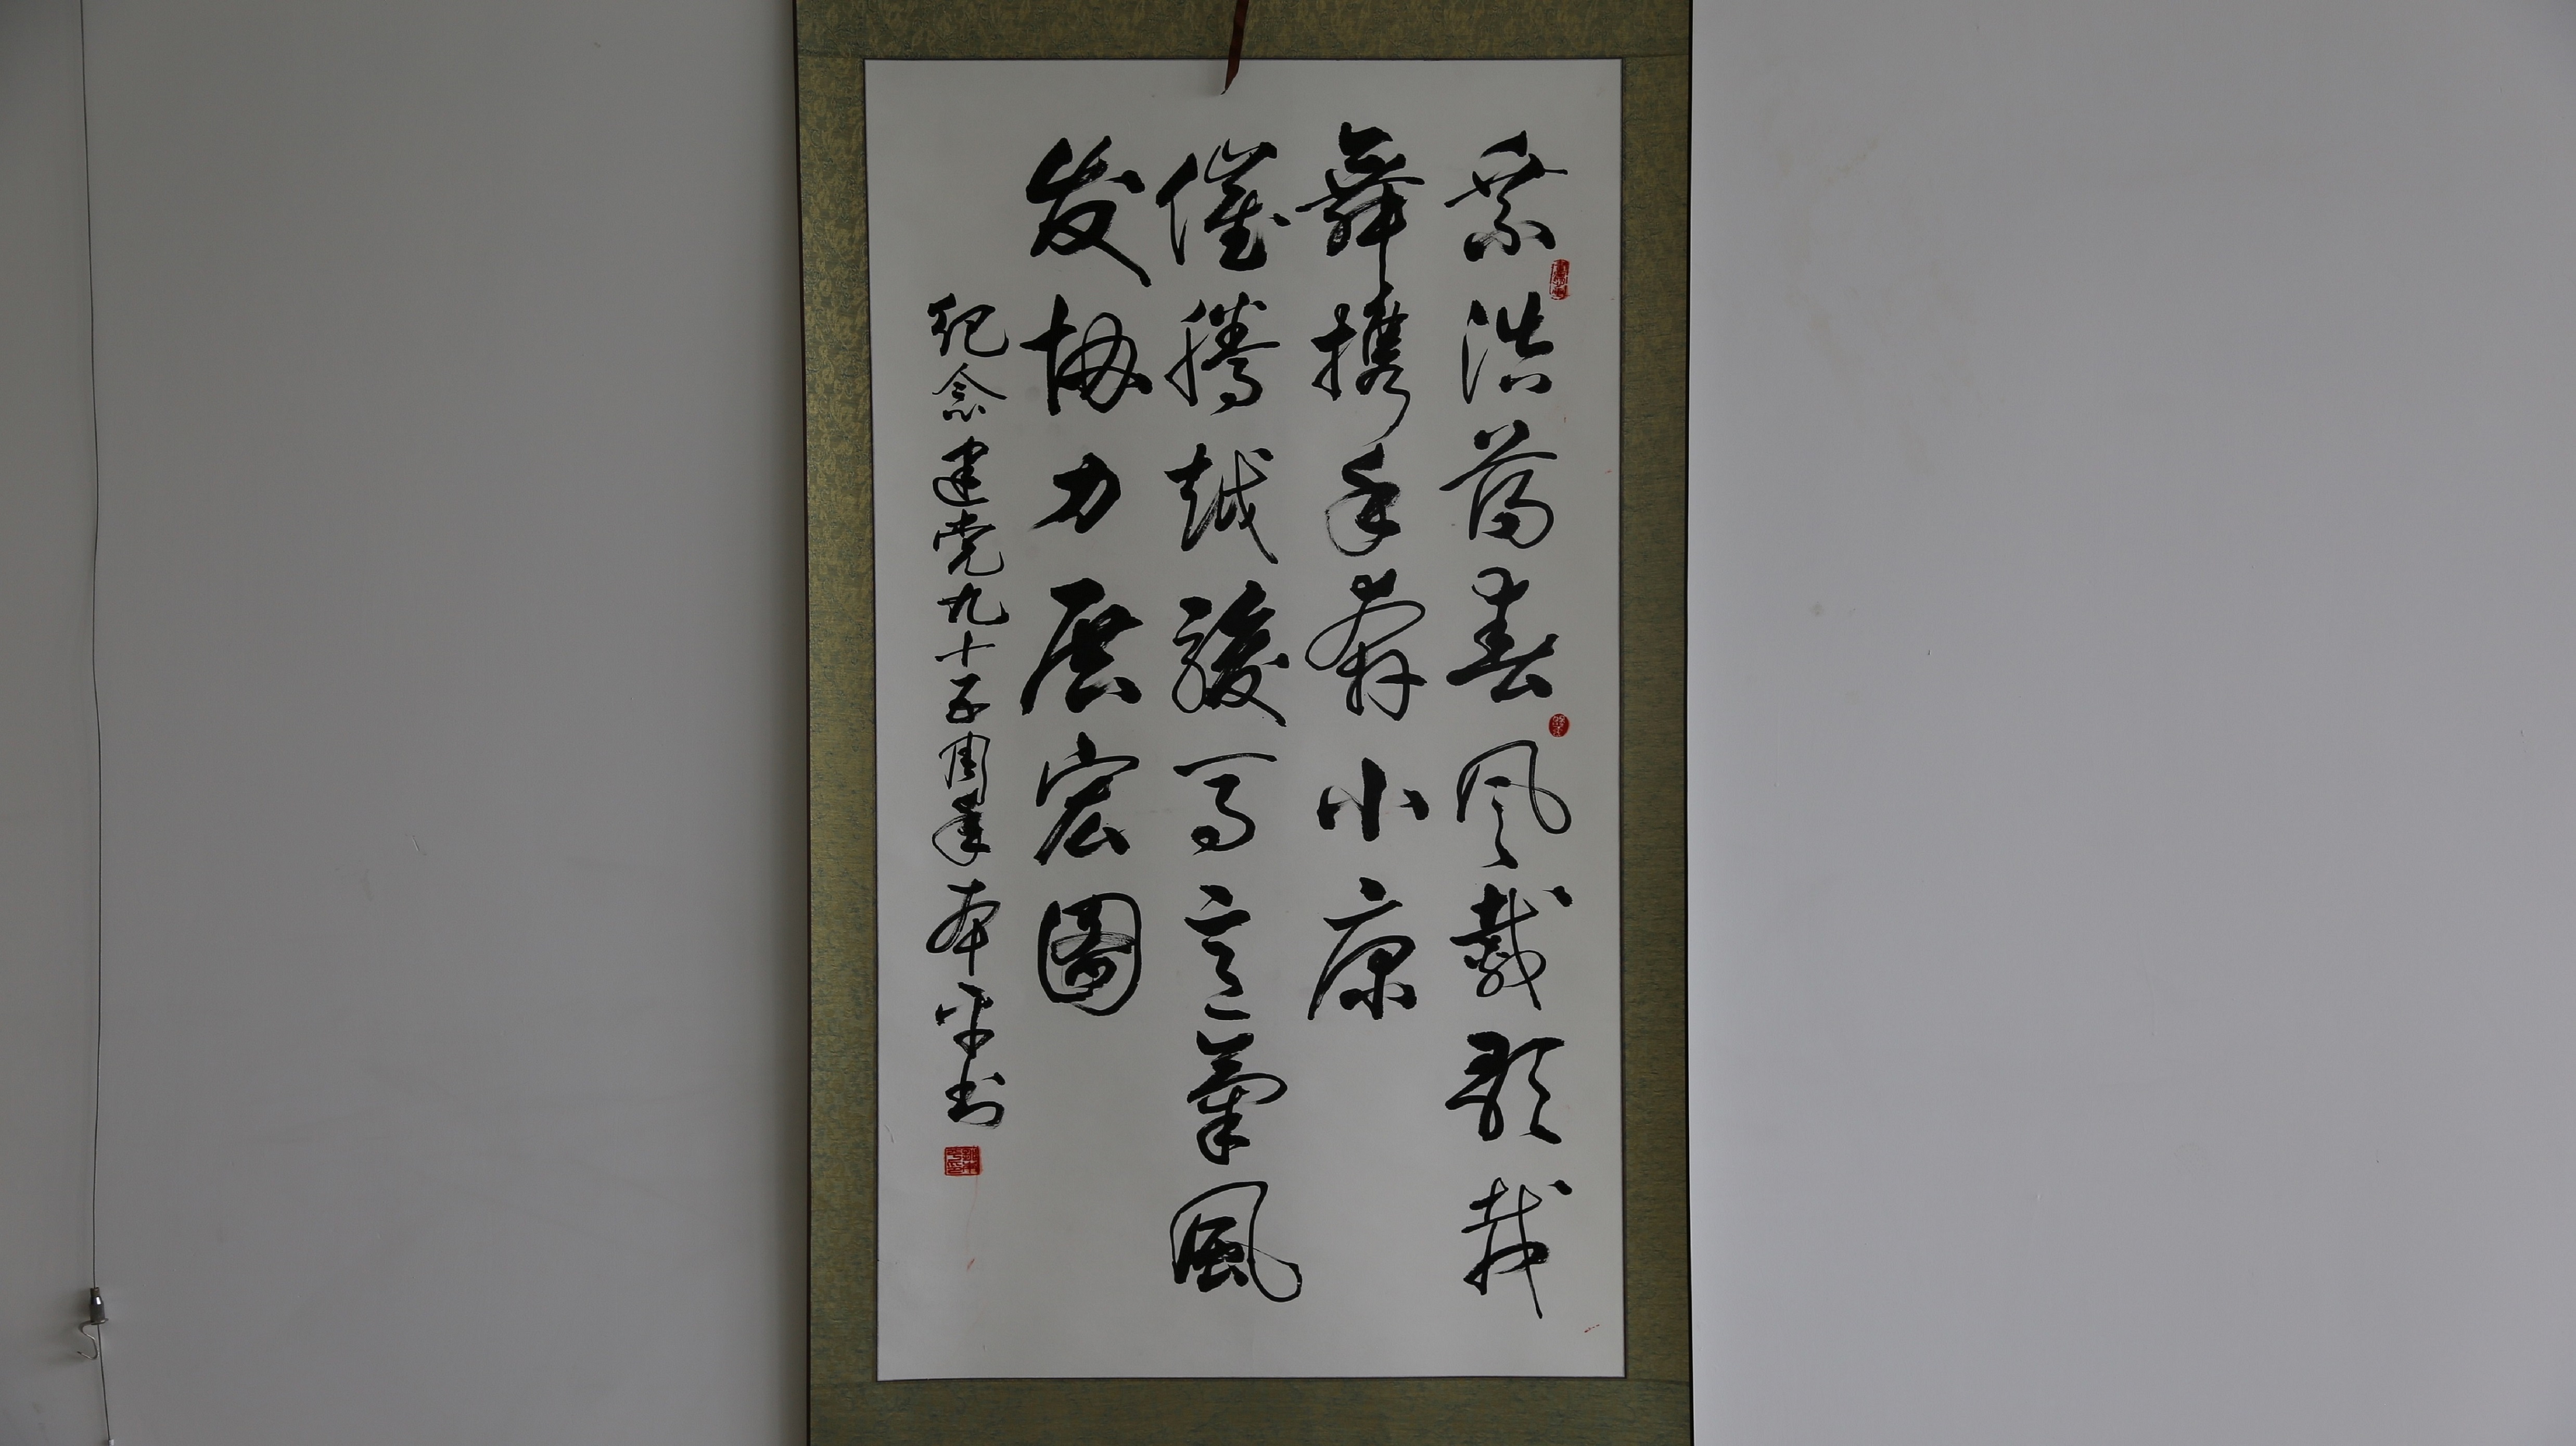 紫浩荡春风载歌载
舞携手奔小康
催腾越骏马意气风
发协力展宏图
纪念建党九十五周年本平书